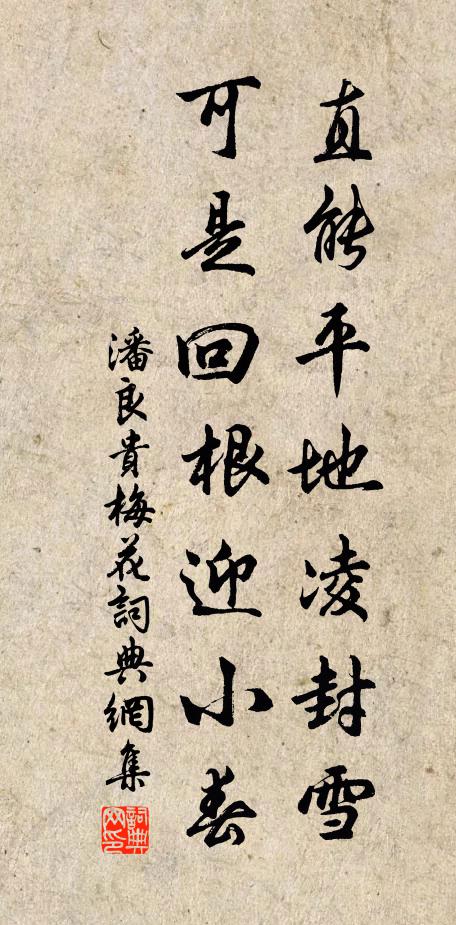 直能平地凌封雪
可是回根迎小春
潘良貴梅花詞典網集
詞典网印